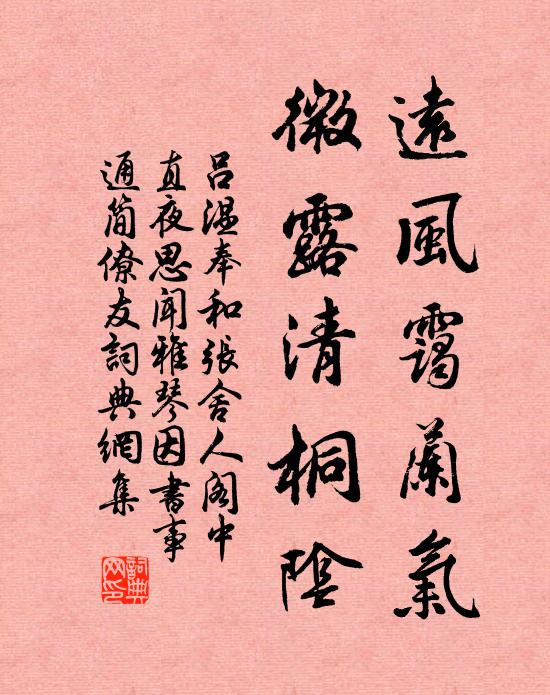 遠風靄蘭氣
微露清桐陰
呂溫奉和張舍人閣中
直夜思聞雅琴因書事
通簡僚友詞典網集
詞典網印